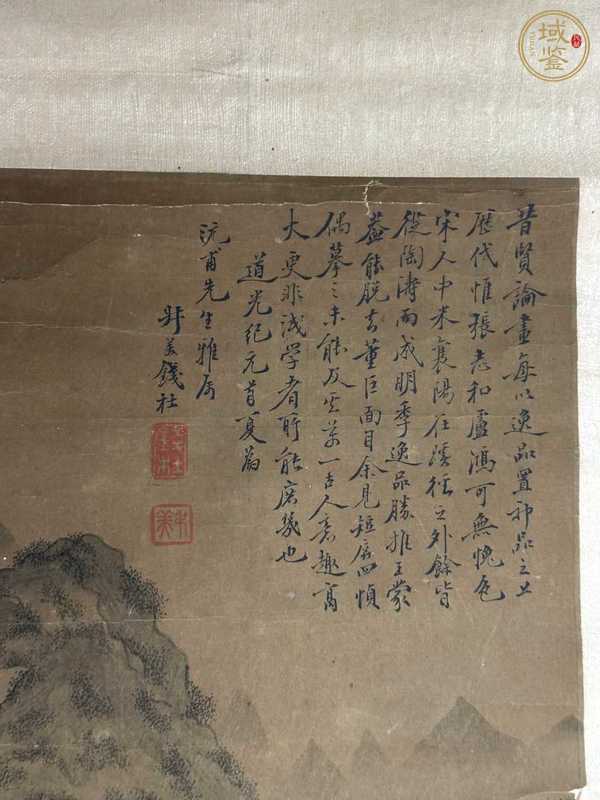 昔賢論畫每以逸品置神品之上
歷代惟張志和盧鴻可無愧色
宋人中米襄陽在溪徑之外餘皆
從陶溶而成明季逸品勝推王蒙
益能脫去董巨面目余見短屏四幀
偶摹之未能及其萬一古人意趣高
大更非淺學者所能庶幾也
道光紀元首夏為
沅甫先生雅屬
叔美錢杜
叔美
域鑒
YUJIAN